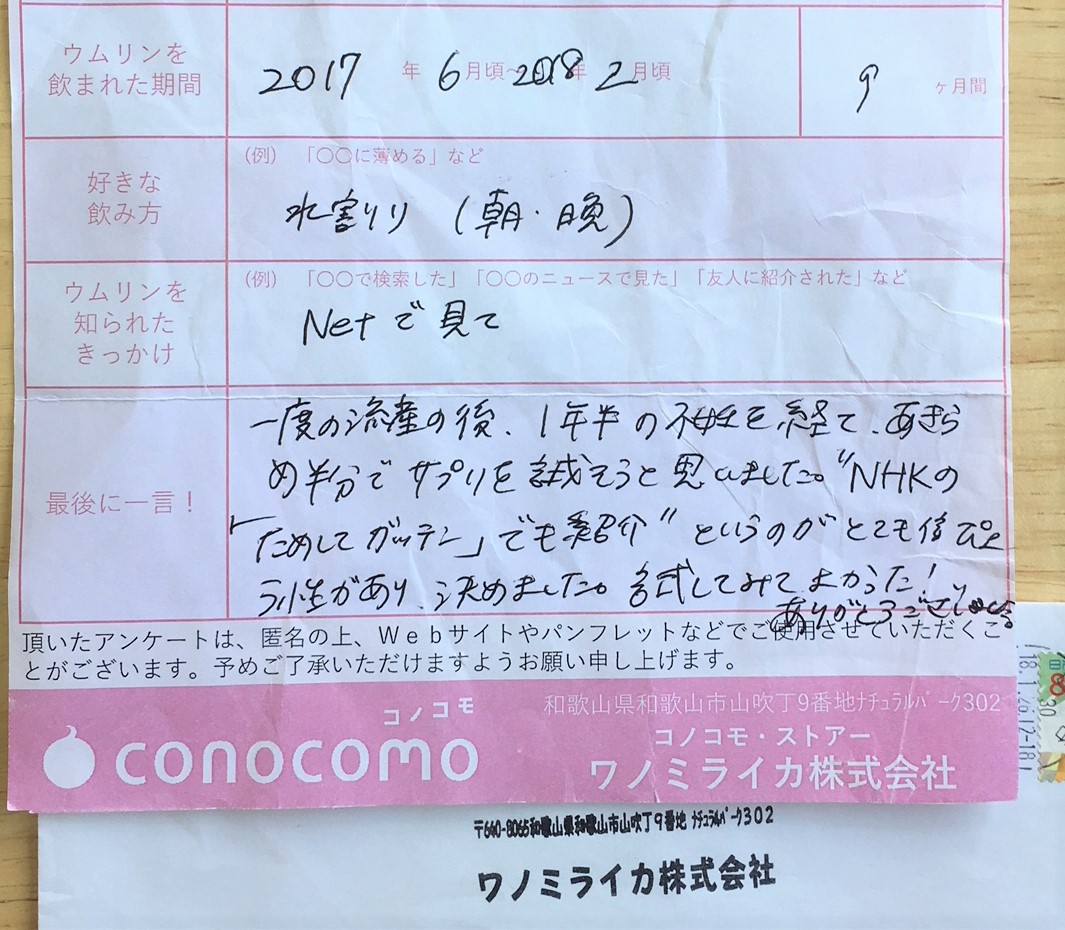 ウムリンを
飲まれた期間
2017 年 6月頃~2018年 2月頃
9 ヶ月間
好きな
飲み方
(例) 「〇〇に薄める」など
水割り (朝・晩)
ウムリンを
知られた
きっかけ
(例) 「〇〇で検索した」「〇〇のニュースで見た」「友人に紹介された」など
Netで見て
最後に一言!
一度の流産の後、1年半の不妊を経て、あきら
め半分でサプリを試そうと思いました。"NHKの
「ためしてガッテン」でも紹介"というのがとても信ぴょ
う性があり、決めました。試してみてよかった!
ありがとうございました。
頂いたアンケートは、匿名の上、Webサイトやパンフレットなどでご使用させていただくこ
とがございます。予めご了承いただけますようお願い申し上げます。
コノコモ
conocomo
和歌山県和歌山市山吹丁9番地ナチュラルパーク302
コノコモ・ストアー
ワノミライカ株式会社
〒640-8065和歌山県和歌山市山吹丁9番地 ナチュラルパーク302
ワノミライカ株式会社